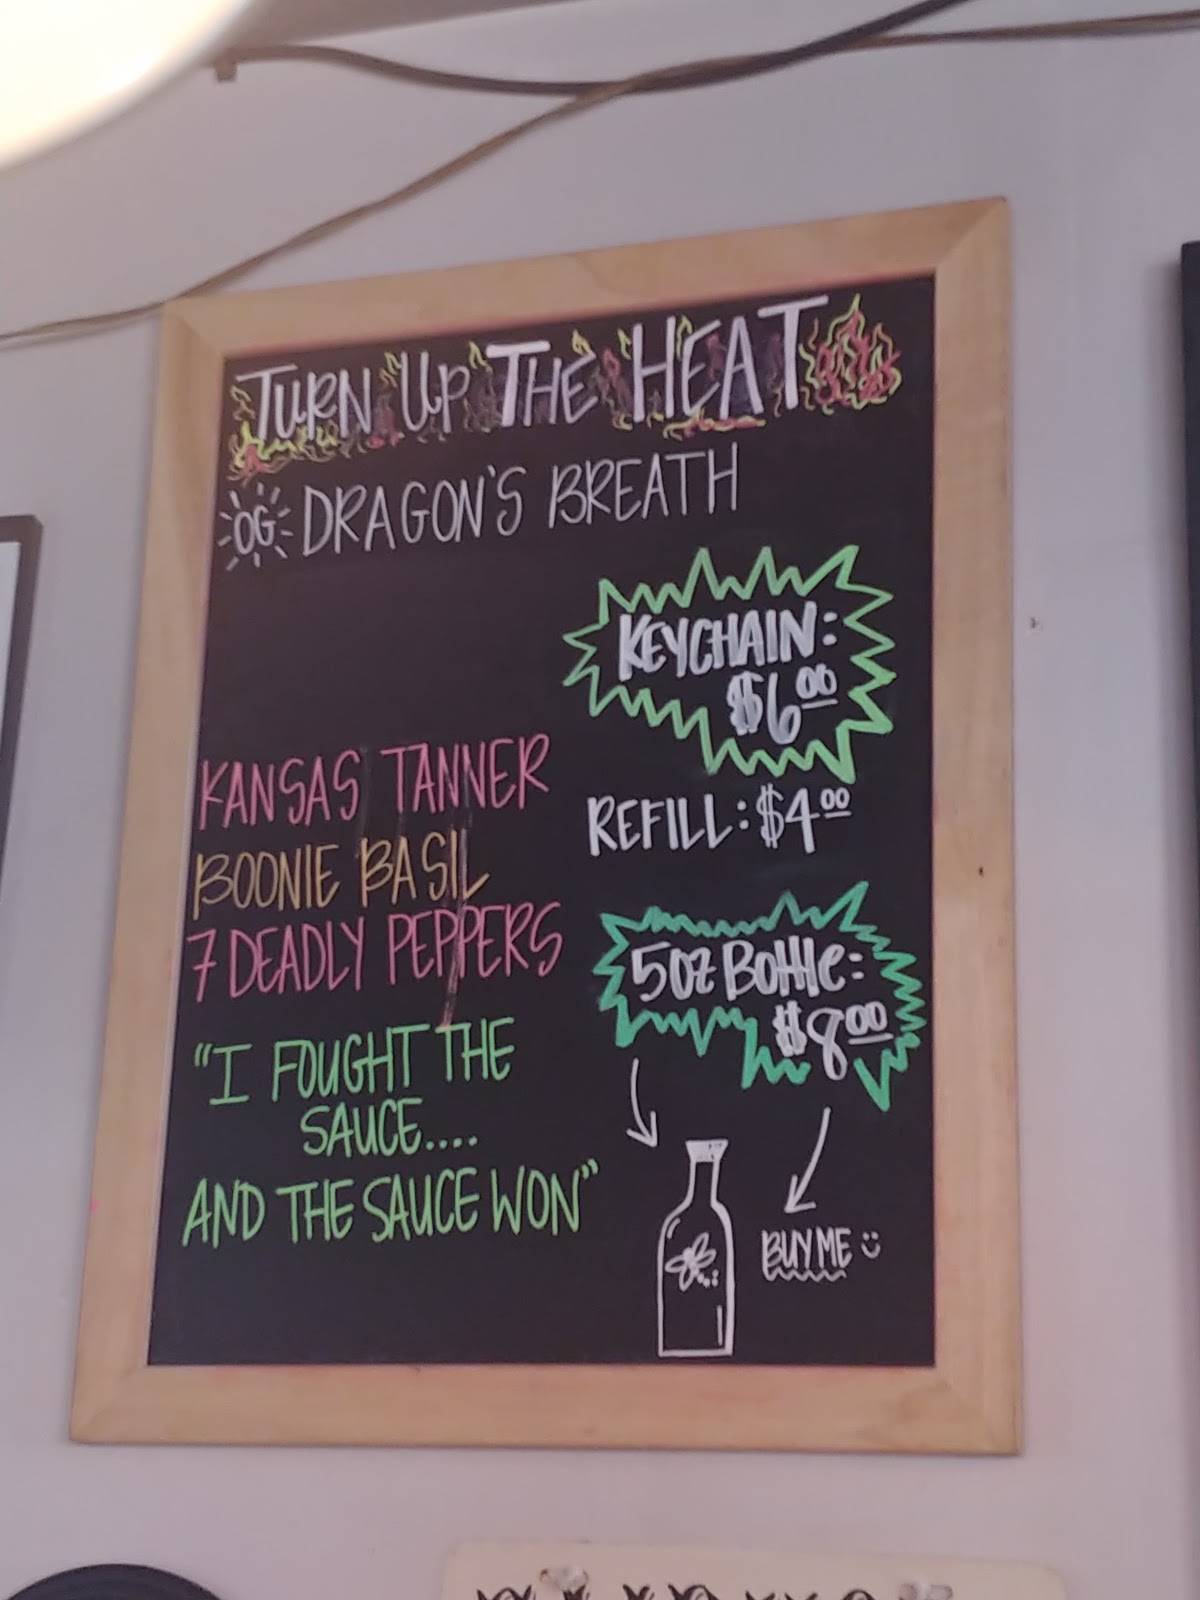 TURN UP THE HEAT
OG DRAGON'S BREATH
KEYCHAIN:
$6.00
REFILL: $4.00
KANSAS TANNER
BOONIE BASIL
7 DEADLY PEPPERS
5oz Bottle:
$8.00
"I FOUGHT THE
SAUCE....
AND THE SAUCE WON"
BUY ME